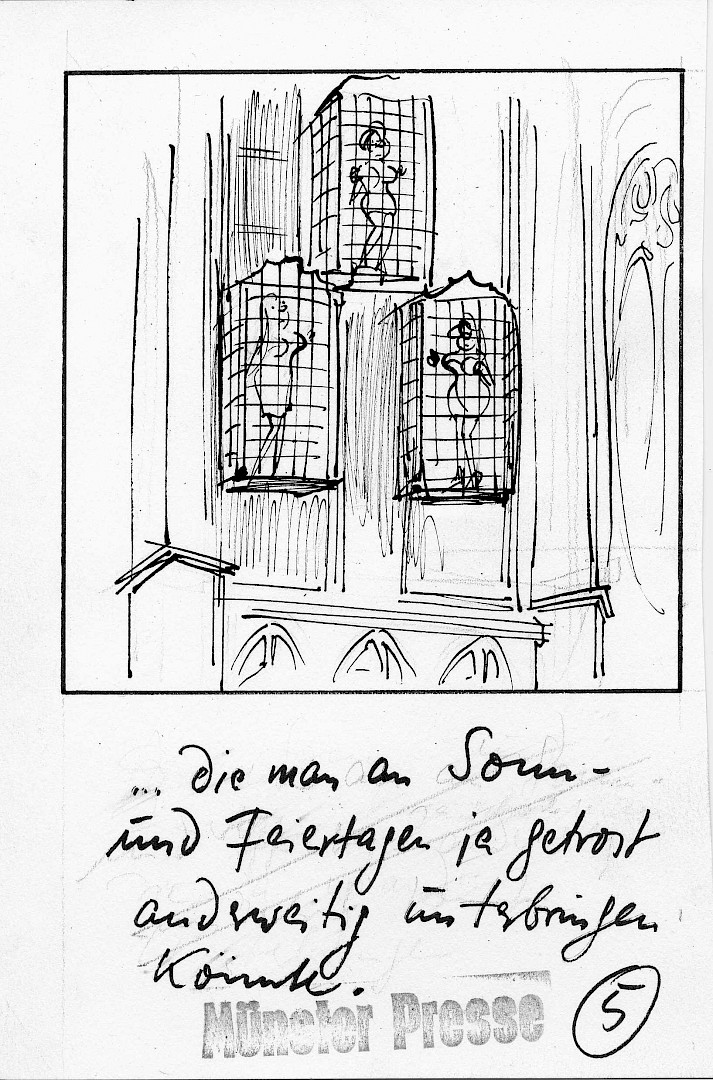 ... die man an Sonn-
und Feiertagen ja getrost
anderweitig unterbringen
könnte.
Münster Presse
5